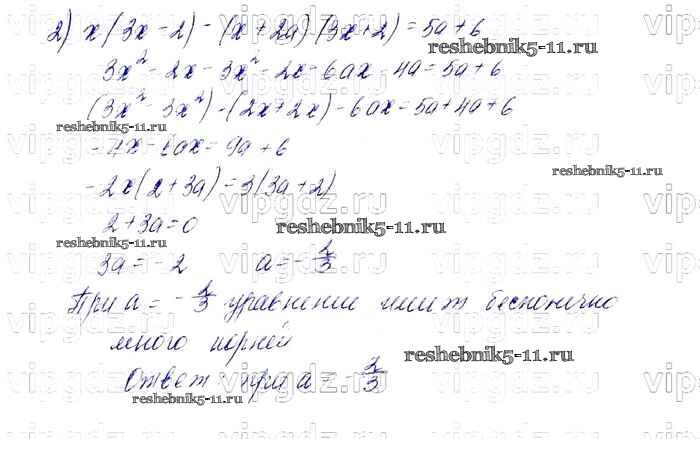 2) x(3x-2)-(x+2a)(3x+2)=5a+6
reshebnik5-11.ru
3x²-2x-3x²-2x-6ax-4a=5a+6
(3x²-3x²)-(2x+2x)-6ax=5a+4a+6
reshebnik5-11.ru
-4x-6ax=9a+6
reshebnik5-11.ru
-2x(2+3a)=3(3a+2)
2+3a=0
reshebnik5-11.ru
reshebnik5-11.ru
3a=-2 a=-2/3
При a=-2/3 уравнение имеет бесконечно
много корней
reshebnik5-11.ru
Ответ при a=-2/3
reshebnik5-11.ru
vipgdz.ru